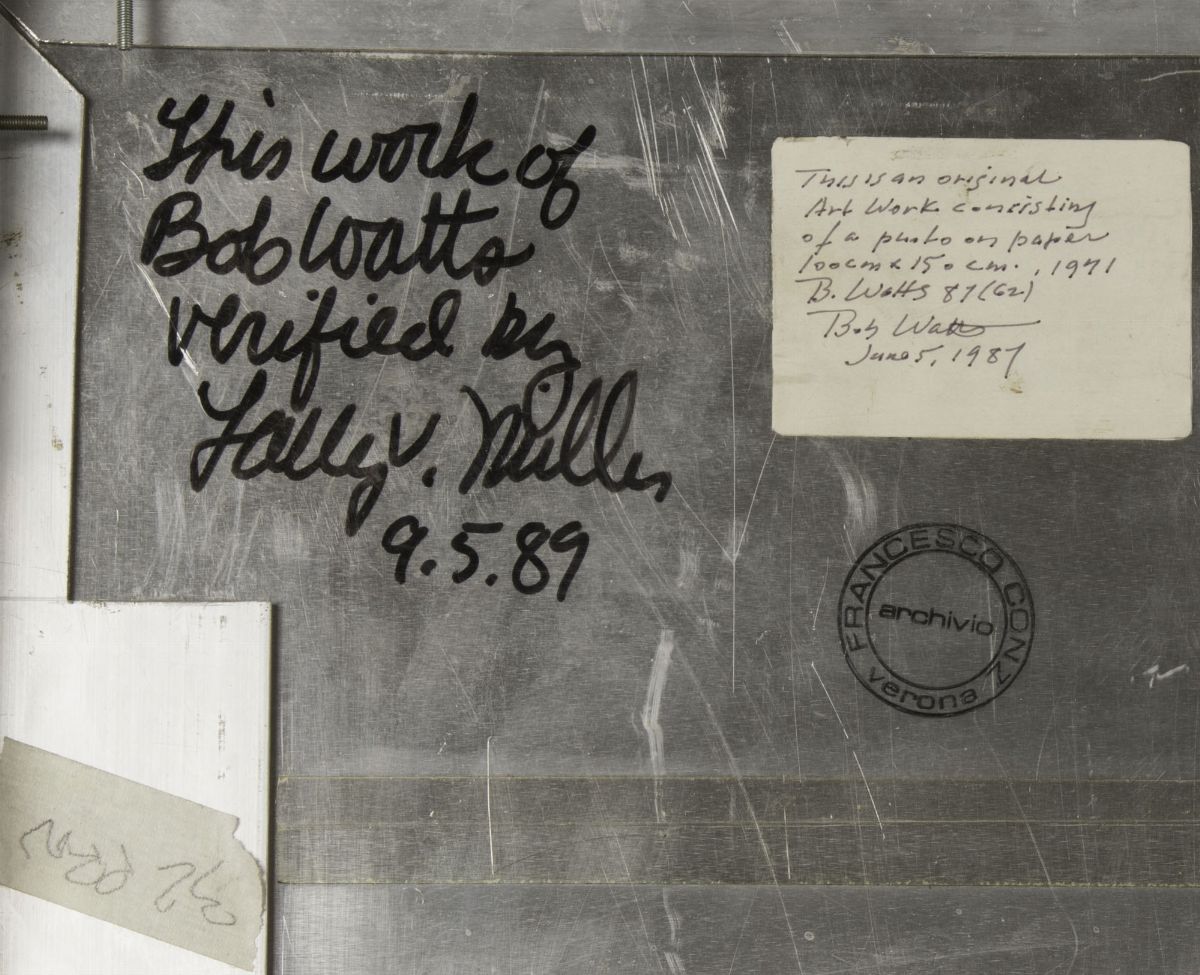 This work of
Bob Watts
verified by
9.5.89
This is an original
Art Work consisting
of a photo on paper
100cm x 150cm., 1971
B. Watts 87 (62)
Bob Watts
June 5, 1987
FRANCESCO CONZ
archivio
verona